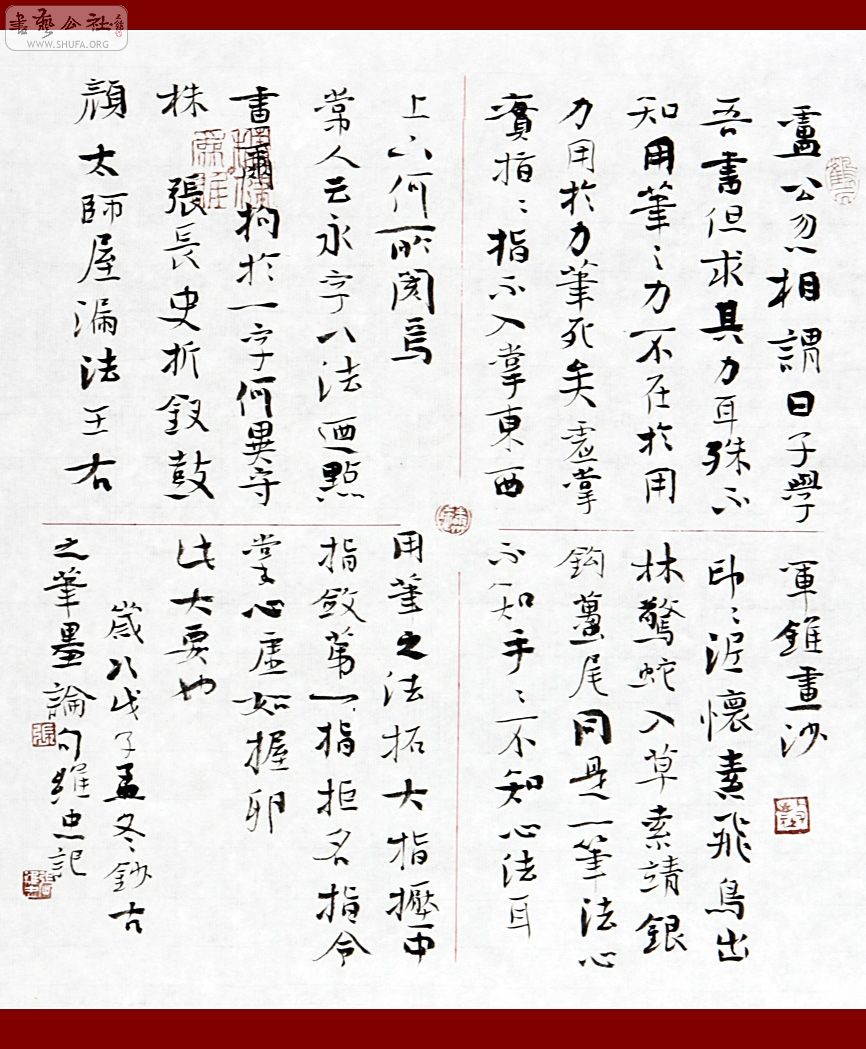 書藝公社
WWW.SHUFA.ORG
盧公忽相謂曰子學
吾書但求其力耳殊不
知用筆〻力不在於用
力用於力筆死矣虛掌
實指〻指不入掌東西
上下何所閡焉
常人云永字八法迺點
書爾拘於一字何異守
株 張長史折釵鼓
顏太師屋漏法王右
軍錐畫沙
印〻泥懷素飛鳥出
林驚蛇入草索靖銀
鈎蠆尾同是一筆法心
不知手〻不知心法耳
用筆之法拓大指擫中
指斂第二指拒名指令
掌心虛如握卵
此大要也
歲次戊子孟冬鈔古
之筆墨論句維忠記